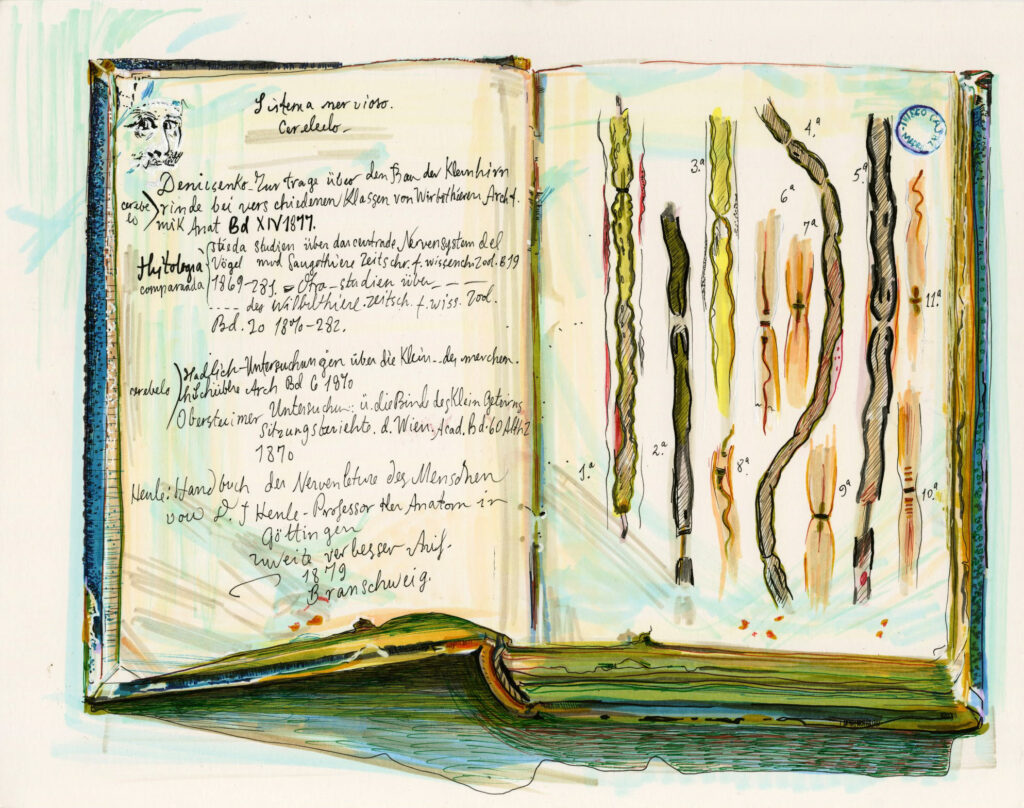 Sistema nervioso.
Cerelelo-
Deniссenko-Zur trage über den Bau der Kleinhirn
cerebe
lo
rinde bei vers chiedenen Klassen von Wirbothieren Arch f.
mik Anat Bd XIV 1877.
Stieda studien über das centrade Nervensystem del
Histologia
comparada
Vögel und Saugothiere Zeitschr. f. wissench Zod. B 19
1869-281. = studien über
des Wilbelthiere. zeitsch. f. wiss. Zod.
Bd. 20 18%-282.
Hadlich-Untersuchungen über die Klein -- des menchen.
cerebelo
Arch Bd 6 1870
Obersteimer Untersuchu: ü. die Binde des Klein
Sitzungsberichte. d. Wien. Acad. Bd. 60 Abth 2
1870
Henle: Handbuch der Nervenleture des Menschen
von D. J Henle-Professor der Anatom in
Göttingen
zweite verbesser Aufl-
1879
Branschweig.
1.ª
2.ª
3.ª
4.ª
5.ª
6ª
7ª
8ª
9ª
10.ª
11.ª